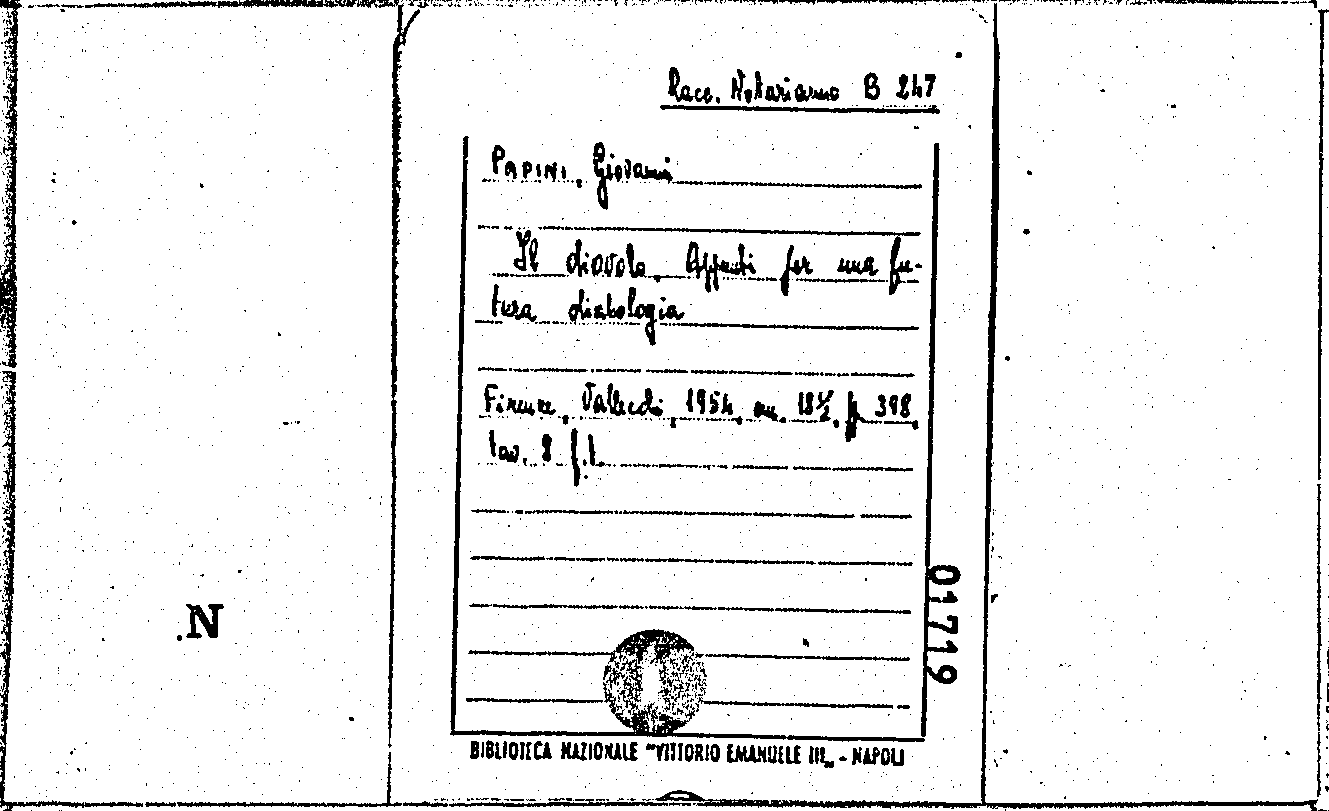 Racc. Notarianno B 247
PAPINI, Giovanni
Il diavolo. Appunti per una fu-
tura diabologia
Firenze, Vallecchi, 1954, cm. 18½, pp. 398,
tav. 8 f.t.
01719
N
BIBLIOTECA NAZIONALE "VITTORIO EMANUELE III„ - NAPOLI